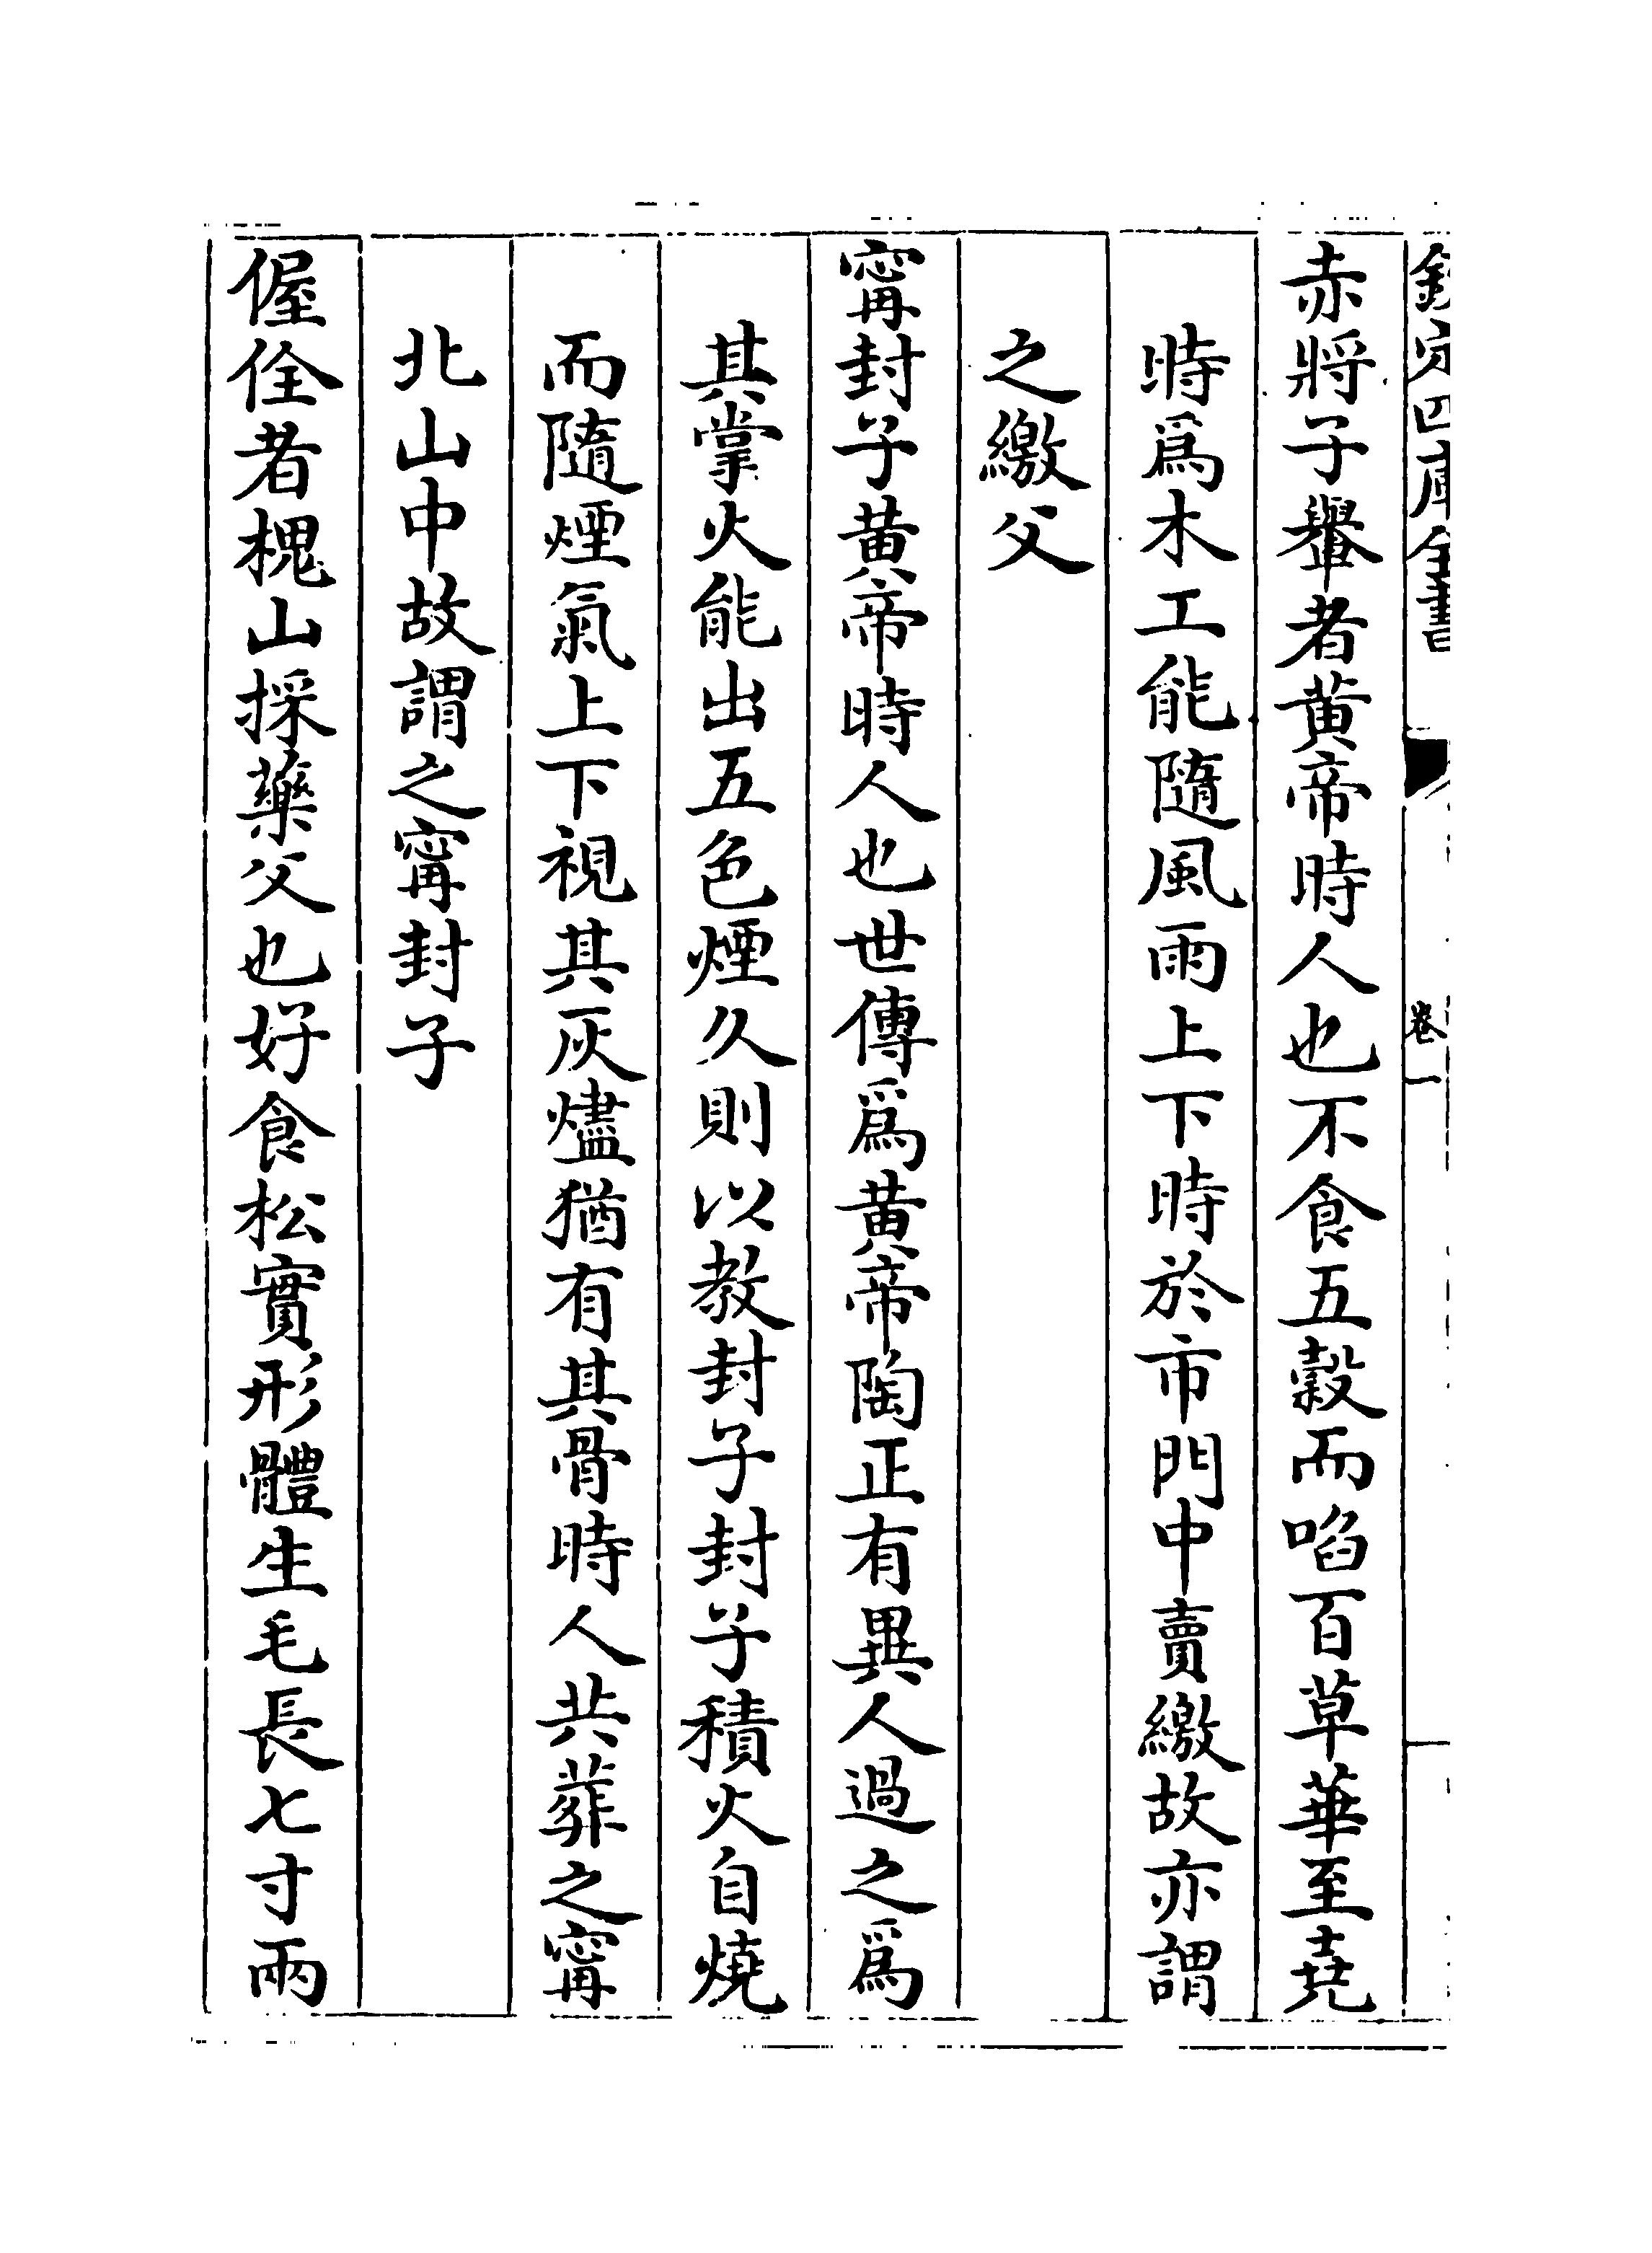 欽定四庫全書
卷一
赤將子轝者黃帝時人也不食五穀而啗百草華至堯
時爲木工能隨風雨上下時於市門中賣繳故亦謂
之繳父
甯封子黃帝時人也世傳爲黃帝陶正有異人過之爲
其掌火能出五色煙久則以教封子封子積火自燒
而隨煙氣上下視其灰燼猶有其骨時人共葬之甯
北山中故謂之甯封子
偓佺者槐山採藥父也好食松實形體生毛長七寸兩